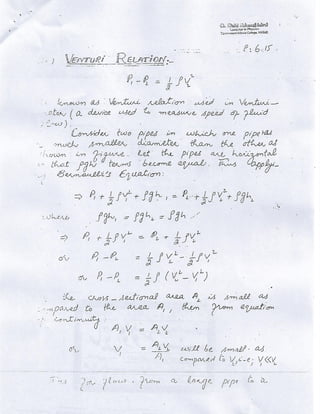 P: 6.15
VENTURI RELATION:-
P₁ - P₂ = ½ ρV₂²
known as Venturi relation used in Venturi-
(a device used to measure speed of fluid
Consider two pipes in which one pipe has
much smaller diameter than the other as
in figure. Let the pipes are horizontal
that ρgh terms become equal. Thus
Bernoulli's Equation:
⇒ P₁ + ½ ρV₁² + ρgh₁ = P₂ + ½ ρV₂² + ρgh₂
where ρgh₁ = ρgh₂ = ρgh
⇒ P₁ + ½ ρV₁² = P₂ + ½ ρV₂²
or P₁ - P₂ = ½ ρV₂² - ½ ρV₁²
or P₁ - P₂ = ½ ρ (V₂² - V₁²)
the cross-sectional area A₂ is small as
to the area A₁, then from equation
continuity
A₁V₁ = A₂V₂
or V₁ = A₂V₂/A₁ will be small as
compared to V₂ i.e; V₁<<V₂
from a large pipe to a